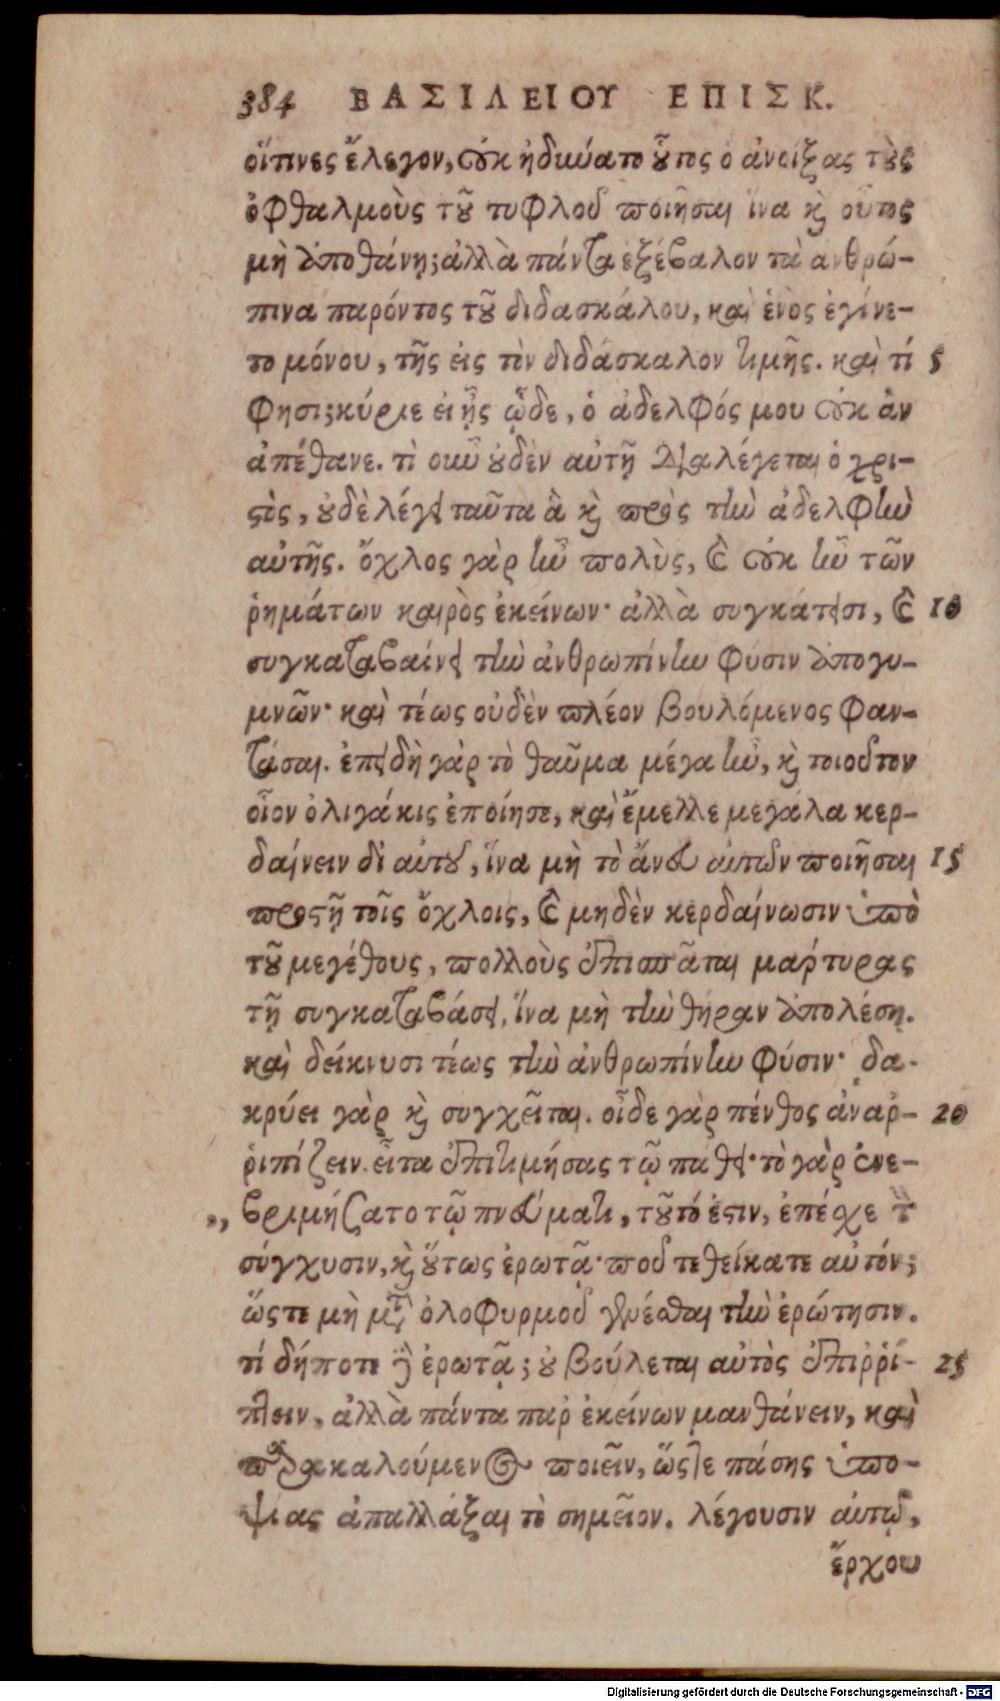 384 ΒΑΣΙΛΕΙΟΥ ΕΠΙΣΚ.
οἵτινες ἔλεγον, οὐκ ἠδύνατο οὗτος ὁ ἀνοίξας τοὺς
ὀφθαλμοὺς τοῦ τυφλοῦ ποιῆσαι ἵνα καὶ οὗτος
μὴ ἀποθάνῃ; ἀλλὰ πάντα ἐξέβαλον τὰ ἀνθρώ-
πινα παρόντος τοῦ διδασκάλου, καὶ ἑνὸς ἐγίνε-
το μόνου, τῆς εἰς τὸν διδάσκαλον τιμῆς. καὶ τί 5
φησι; κύριε εἰ ἦς ὧδε, ὁ ἀδελφός μου οὐκ ἂν
ἀπέθανε. τὶ οὖν οὐδὲν αὐτῇ διαλέγεται ὁ χρι-
στὸς, οὐδὲ λέγει ταῦτα ἃ καὶ πρὸς τὴν ἀδελφὴν
αὐτῆς. ὄχλος γὰρ ἦν πολὺς, καὶ οὐκ ἦν τῶν
ῥημάτων καιρὸς ἐκείνων· ἀλλὰ συγκάτεισι, καὶ 10
συγκαταβαίνει τὴν ἀνθρωπίνην φύσιν ἀπογυ-
μνῶν· καὶ τέως οὐδὲν πλέον βουλόμενος φαν-
τάσαι. ἐπειδὴ γὰρ τὸ θαῦμα μέγα ἦν, καὶ τοιοῦτον
οἷον ὀλιγάκις ἐποίησε, καὶ ἔμελλε μεγάλα κερ-
δαίνειν δι αὐτοῦ, ἵνα μὴ τὸ ἄνευ αὐτῶν ποιῆσαι 15
προστῇ τοῖς ὄχλοις, καὶ μηδὲν κερδαίνωσιν ὑπὸ
τοῦ μεγέθους, πολλοὺς ἐπισπᾶται μάρτυρας
τῇ συγκαταβάσει, ἵνα μὴ τὴν θήραν ἀπολέσῃ.
καὶ δείκνυσι τέως τὴν ἀνθρωπίνην φύσιν· δα-
κρύει γὰρ καὶ συγχεῖται. οἶδε γὰρ πένθος ἀναῤ- 20
ῥιπίζειν. εἶτα ἐπιτιμήσας τῷ πάθει· τὸ γὰρ ἐνε-
„ βριμήσατο τῷ πνεύματι, τοῦτό ἐστιν, ἐπέσχε τὴν
σύγχυσιν, καὶ οὕτως ἐρωτᾷ· ποῦ τεθείκατε αὐτόν;
ὥστε μὴ μετὰ ὀλοφυρμοῦ γενέσθαι τὴν ἐρώτησιν.
τί δήποτε δὲ ἐρωτᾷ; οὐ βούλεται αὐτὸς ἐπιῤῥί- 25
πτειν, ἀλλὰ πάντα παρ ἐκείνων μανθάνειν, καὶ
παρακαλούμενος ποιεῖν, ὥστε πάσης ὑπο-
ψίας ἀπαλλάξαι τὸ σημεῖον. λέγουσιν αὐτῷ,
ἔρχου
Digitalisierung gefördert durch die Deutsche Forschungsgemeinschaft - DFG